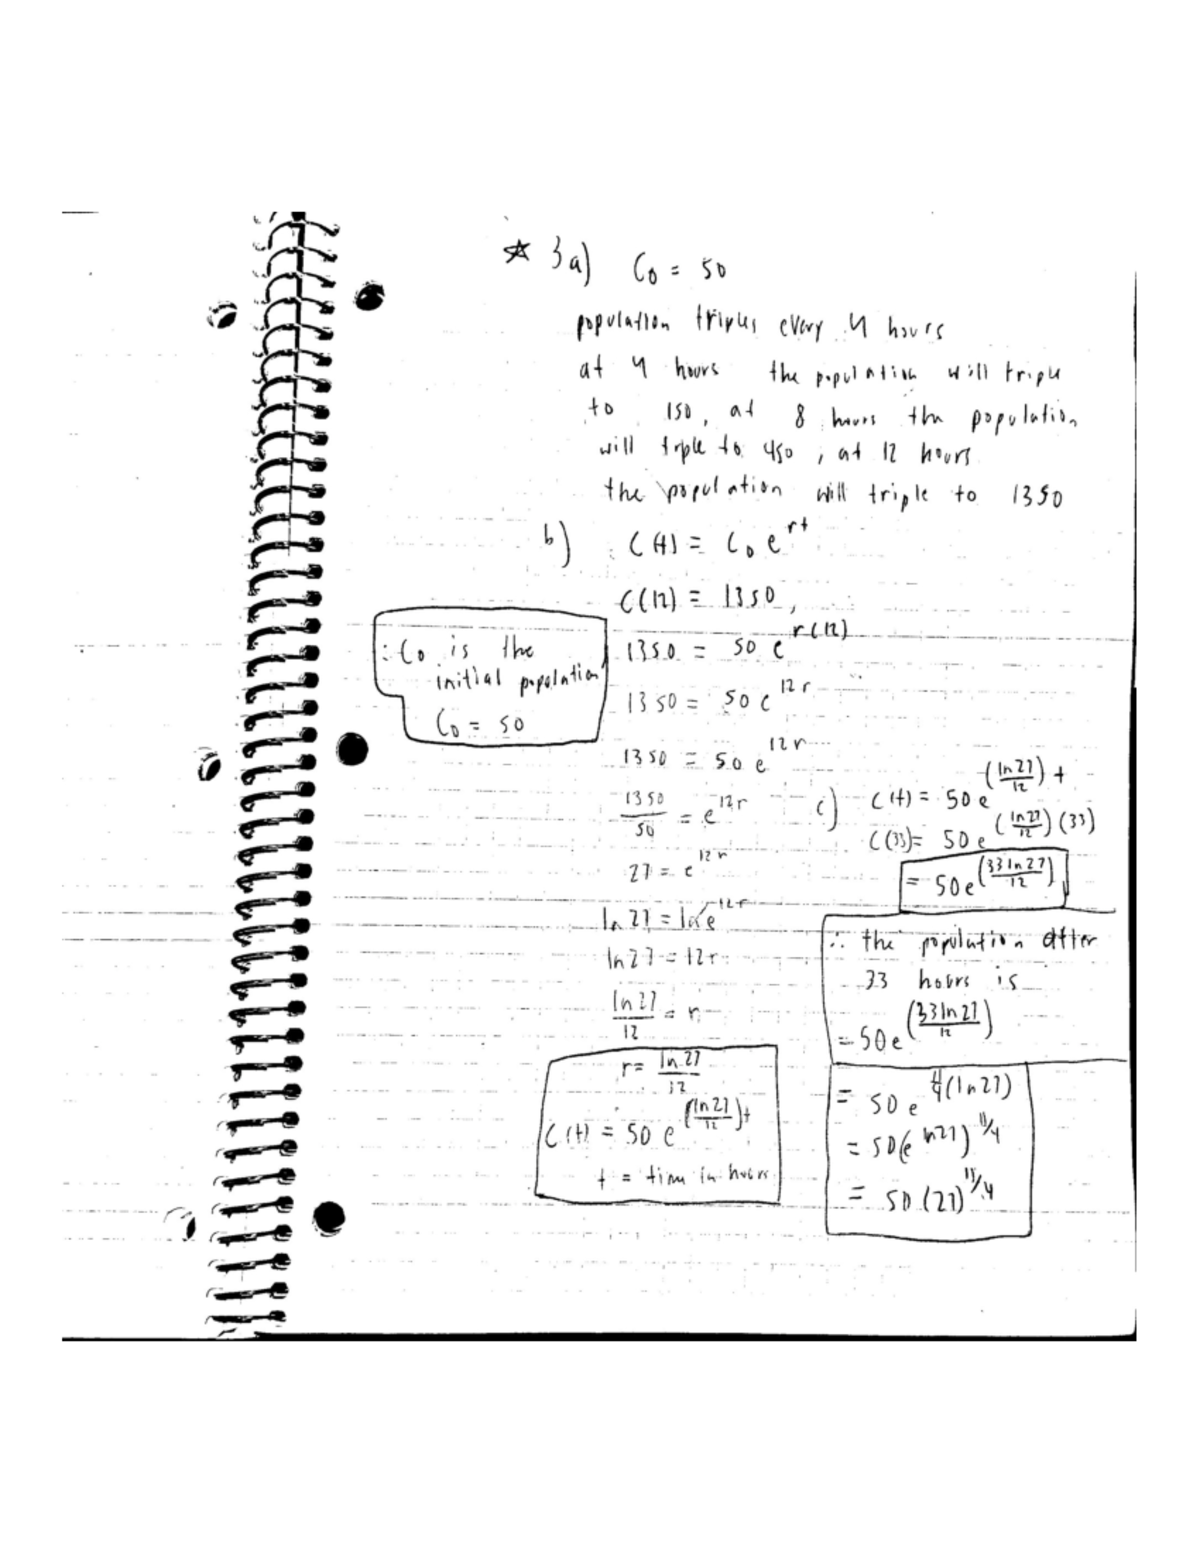 ☆ 3a) C₀ = 50
population triples every 4 hours
at 4 hours the population will triple
to 150, at 8 hours the population
will triple to 450, at 12 hours
the population will triple to 1350
b) C(t) = C₀ e^{rt}
C(12) = 1350,
1350 = 50 e^{r(12)}
1350 = 50 e^{12r}
1350 = 50 e^{12r}
1350/50 = e^{12r}
27 = e^{12r}
ln 27 = ln e^{12r}
ln 27 = 12r
ln 27/12 = r
r = ln 27/12
C(t) = 50 e^{(ln 27/12)t}
t = time in hours
∴ C₀ is the
initial population
C₀ = 50
c) C(t) = 50 e^{(ln 27/12)t}
C(33) = 50 e^{(ln 27/12)(33)}
= 50 e^{(33 ln 27/12)}
∴ the population after
33 hours is
= 50 e^{(33 ln 27/12)}
= 50 e^{11/4 (ln 27)}
= 50 (e^{ln 27})^{11/4}
= 50 (27)^{11/4}